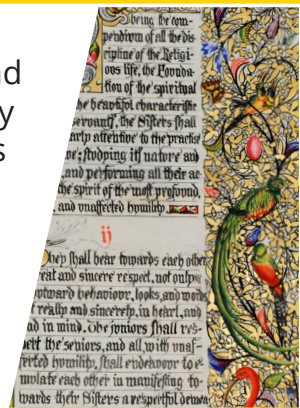 nd
y
s
being the com-
pendium of all the dis-
cipline of the Religi-
ous life, the Founda-
tion of the spiritual
the beautiful characteristic
servants, the Sisters shall
attentive to the practise
studying its nature and
and performing all their ac-
the spirit of the most profound,
and unaffected humility.
ij
They shall bear towards each other
great and sincere respect, not only
outward behaviour, looks, and words
really and sincerely, in heart, and
in mind. The juniors shall res-
pect the seniors, and all with unaf-
fected humility, shall endeavour to e-
mulate each other in manifesting to
wards their Sisters a respectful